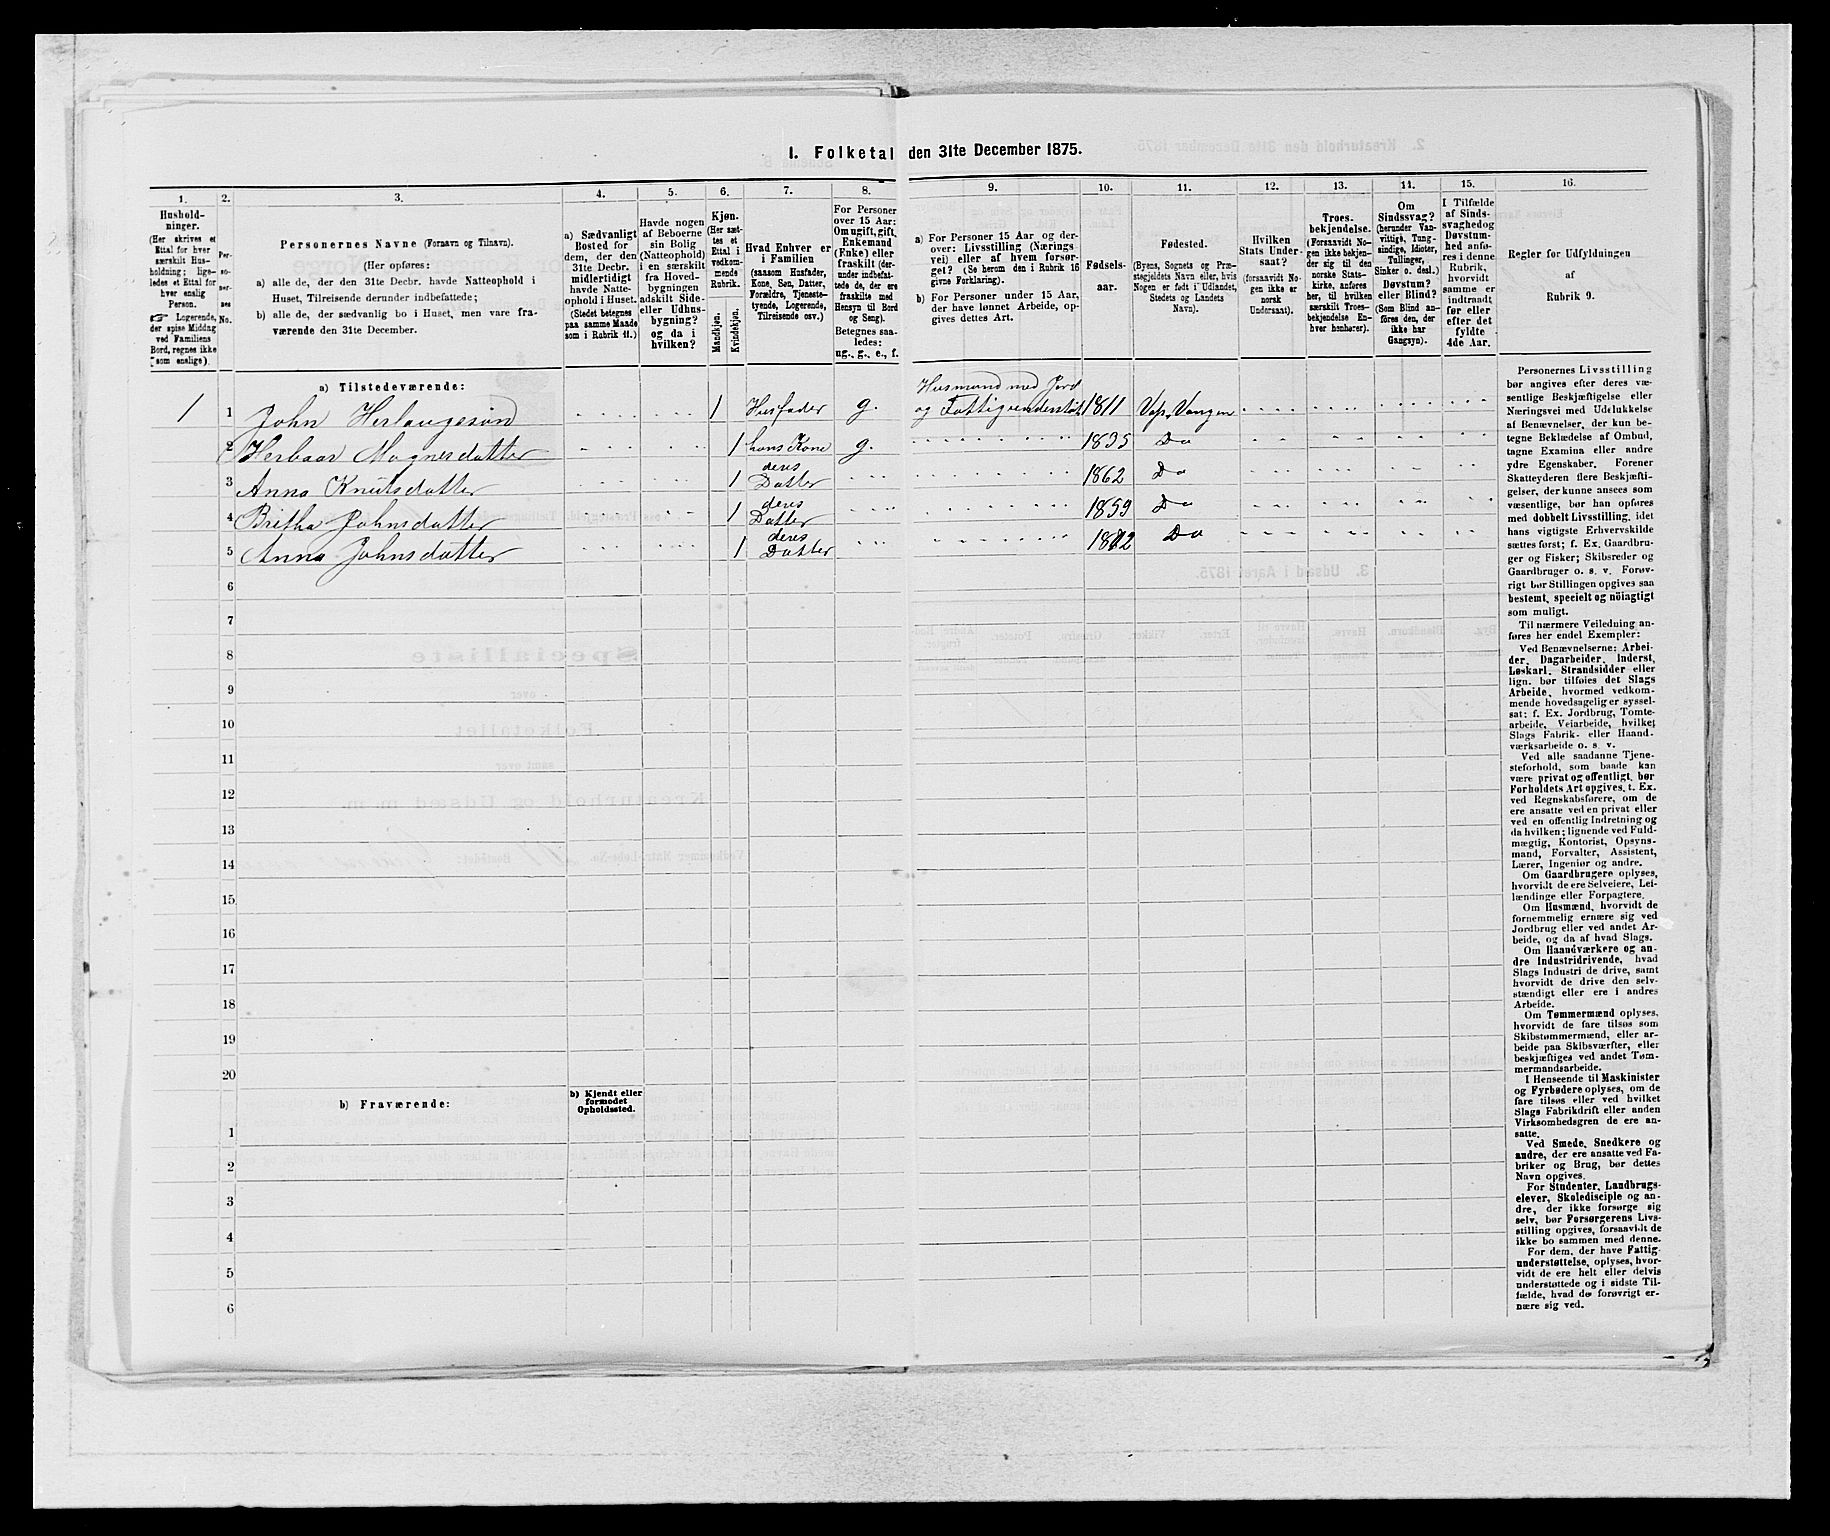 I. Folketal den 31te December 1875.
1. 2. 3. 4. 5. 6. 7. 8. 9. 10. 11. 12. 13. 14. 15. 16.
Hushold-
ninger.
(Her skrives et
Ettal for hver
særskilt Hus-
holdning; lige-
ledes et Ettal for
hver enslig
Person.
☞ Logerende,
der spise Middag
ved Familiens
Bord, regnes ikke
som enslige).
Per-
so-
ner-
nes
No.
Personernes Navne (Fornavn og Tilnavn).
(Her opføres:
a) alle de, der den 31te Decbr. havde Natteophold i
Huset, Tilreisende derunder indbefattede;
b) alle de, der sædvanlig bo i Huset, men vare fra-
værende den 31te December.
a) Sædvanligt
Bosted for
dem, der den
31te Decbr.
midlertidigt
havde Natte-
ophold i Huset.
(Stedet betegnes
paa samme Maade
som i Rubrik 11.)
Havde nogen
af Beboerne
sin Bolig
(Natteophold)
i en særskilt
fra Hoved-
bygningen
adskilt Side-
eller Udhus-
bygning?
og da i
hvilken?
Kjøn.
(Her sæt-
tes et
Ettal i
vedkom-
mende
Rubrik.
Mandkjøn.
Kvindekjøn.
Hvad Enhver er
i Familien
(saasom Husfader,
Kone, Søn, Datter,
Forældre, Tjeneste-
tyende, Logerende,
Tilreisende osv.)
For Personer
over 15 Aar:
Om ugift, gift,
Enkemand
(Enke) eller
fraskilt (der-
under indbefat-
tede de, der ere
fraskilte med
Hensyn til Bord
og Seng).
Betegnes saa-
ledes:
ug., g., e., f.
a) For Personer 15 Aar og der-
over: Livsstilling (Nærings-
vei) eller af hvem forsør-
get? (Se herom den i Rubrik 16
givne Forklaring).
b) For Personer under 15 Aar,
der have lønnet Arbeide, op-
gives dettes Art.
Fødsels-
aar.
Fødested.
(Byens, Sognets og Præ-
stegjeldets Navn eller, hvis
Nogen er født i Udlandet,
Stedets og Landets
Navn).
Hvilken
Stats Under-
saat?
(forsaavidt No-
gen ikke er
norsk
Undersaat).
Troes-
bekjendelse.
(Forsaavidt No-
gen ikke bekjen-
der sig til den
norske Stats-
kirke, anføres
her, til hvilken
særskilt Troes-
bekjendelse En-
hver henhører).
Om
Sindssvag?
(herunder Van-
vittige, Tung-
sindige, Idioter,
Tullinger,
Sinker o. desl.)
Døvstum?
eller Blind?
(Som Blind an-
føres den, der
ikke har
Gangsyn).
I Tilfælde
af Sinds-
svaghedog
Døvstum-
hed anfø-
res i denne
Rubrik,
hvorvidt
samme er
indtraadt
før eller
efter det
fyldte
4de Aar.
Regler for Udfyldningen
af
Rubrik 9.
a) Tilstedeværende:
Husmand med Jord
1 1 John Herlaugssøn 1 Husfader g. og Fattigunderstøt 1811 Vap, Vangen
2 Herbaar Magnesdatter 1 hans Kone g. 1835 Do
3 Anna Knutsdatter 1 deres Datter 1862 Do
4 Britha Johnsdatter 1 deres Datter 1859 Do
5 Anna Johnsdatter 1 deres Datter 1872 Do
6
7
8
9
10
11
12
13
14
15
16
17
18
19
20
b) Fraværende:
b) Kjendt eller
formodet
Opholdssted.
1
2
3
4
5
6
Personernes Livsstilling
bør angives efter deres væ-
sentlige Beskjæftigelse eller
Næringsvei med Udelukkelse
af Benævnelser, der kun be-
tegne Beklædelse af Ombud,
tagne Examina eller andre
ydre Egenskaber. Forener
Skatteyderen flere Beskjæfti-
gelser, der kunne ansees som
væsentlige, bør han opføres
med dobbelt Livsstilling, idet
hans vigtigste Erhvervskilde
sættes først; f. Ex. Gaardbru-
ger og Fisker; Skibsreder og
Gaardbruger o. s. v. Forøv-
rigt bør Stillingen opgives saa
bestemt, specielt og nöiagtigt
som muligt.
Til nærmere Veiledning an-
føres her endel Exempler:
Ved Benævnelserne: Arbei-
der, Dagarbeider, Inderst,
Løskarl, Strandsidder eller
lign. bør tilføies det Slags
Arbeide, hvormed vedkom-
mende hovedsagelig er syssel-
sat; f. Ex. Jordbrug, Tomte-
arbeide, Veiarbeide, hvilket
Slags Fabrik- eller Haand-
værksarbeide o. s. v.
Ved alle saadanne Tjene-
steforhold, som baade kan
være privat og offentligt, bør
Forholdets Art opgives, t. Ex.
ved Regnskabsførere, om de
ere ansatte ved en privat eller
ved en offentlig Indretning og
da hvilken; lignende ved Fuld-
mægtig, Kontorist, Opsyns-
mand, Forvalter, Assistent,
Lærer, Ingeniør og andre.
Om Gaardbrugere oplyses,
hvorvidt de ere Selveiere, Lei-
lændinge eller Forpagtere.
Om Husmænd, hvorvidt de
fornemmelig ernære sig ved
Jordbrug eller ved andet Ar-
beide, og da af hvad Slags.
Om Haandværkere og an-
dre Industridrivende, hvad
Slags Industri de drive, samt
hvorvidt de drive den selv-
stændigt eller ere i andres
Arbeide.
Om Tømmermænd oplyses,
hvorvidt de fare tilsøs som
Skibstømmermænd, eller ar-
beide paa Skibsværfter, eller
beskjæftiges ved andet Tøm-
mermandsarbeide.
I Henseende til Maskinister
og Fyrbødere oplyses, om de
fare tilsøs eller ved hvilket
Slags Fabrikdrift eller anden
Virksomhedsgren de ere an-
satte.
Ved Smede, Snedkere og
andre, der ere ansatte ved Fa-
briker og Brug, bør dettes
Navn opgives.
For Studenter, Landbrugs-
elever, Skoledisciple og an-
dre, der ikke forsørge sig
selv, bør Forsørgerens Livs-
stilling opgives, forsaavidt de
ikke bo sammen med denne.
For dem, der have Fattig-
understøttelse, oplyses, hvor-
vidt de ere helt eller delvis
understøttede og i sidste Til-
fælde, hvad de forøvrigt er-
nære sig ved.